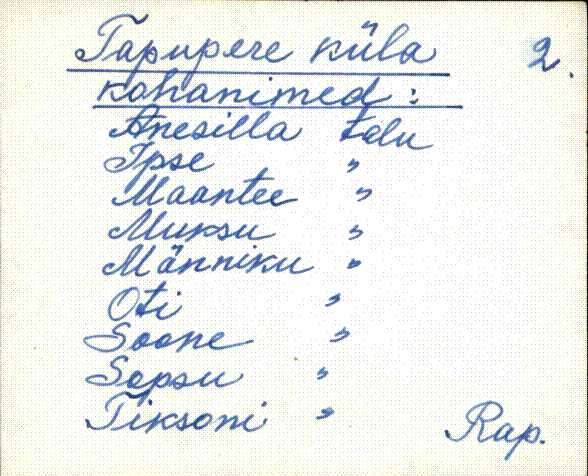 Tapupere küla 2.
kohanimed:
Anesilla talu
Ipse "
Maantee "
Muksu "
Männiku "
Oti "
Soone "
Sopsu "
Tiksoni "
Rap.